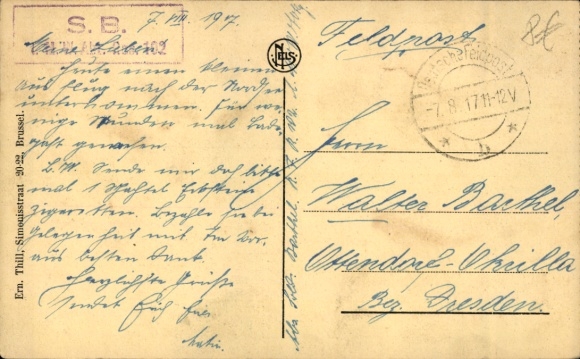 S. B.
7. VIII. 1917.
Meine Lieben,
Heute einen kleinen
Ausflug nach der Nordsee
unternommen. Für we-
nige Stunden mal Bade-
gast gewesen.
B.W. Sende mir doch bitte
mal 1 Schachtel
Zigaretten. Bezahle sie bei
Gelegenheit mit. Im Vor-
aus besten Dank.
Herzlichste Grüße
sendet Euch Euer
Ern. Thill, Simonisstraat 20-22, Brussel.
NELS
Feldpost
Deutsche Feldpost
-7.8.17 11-12V
* b *
Herrn
Walter Barthel,
Ottendorf-Okrilla
Bez. Dresden.